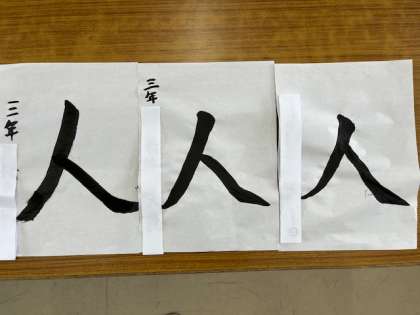 三年
人
三年
人
人